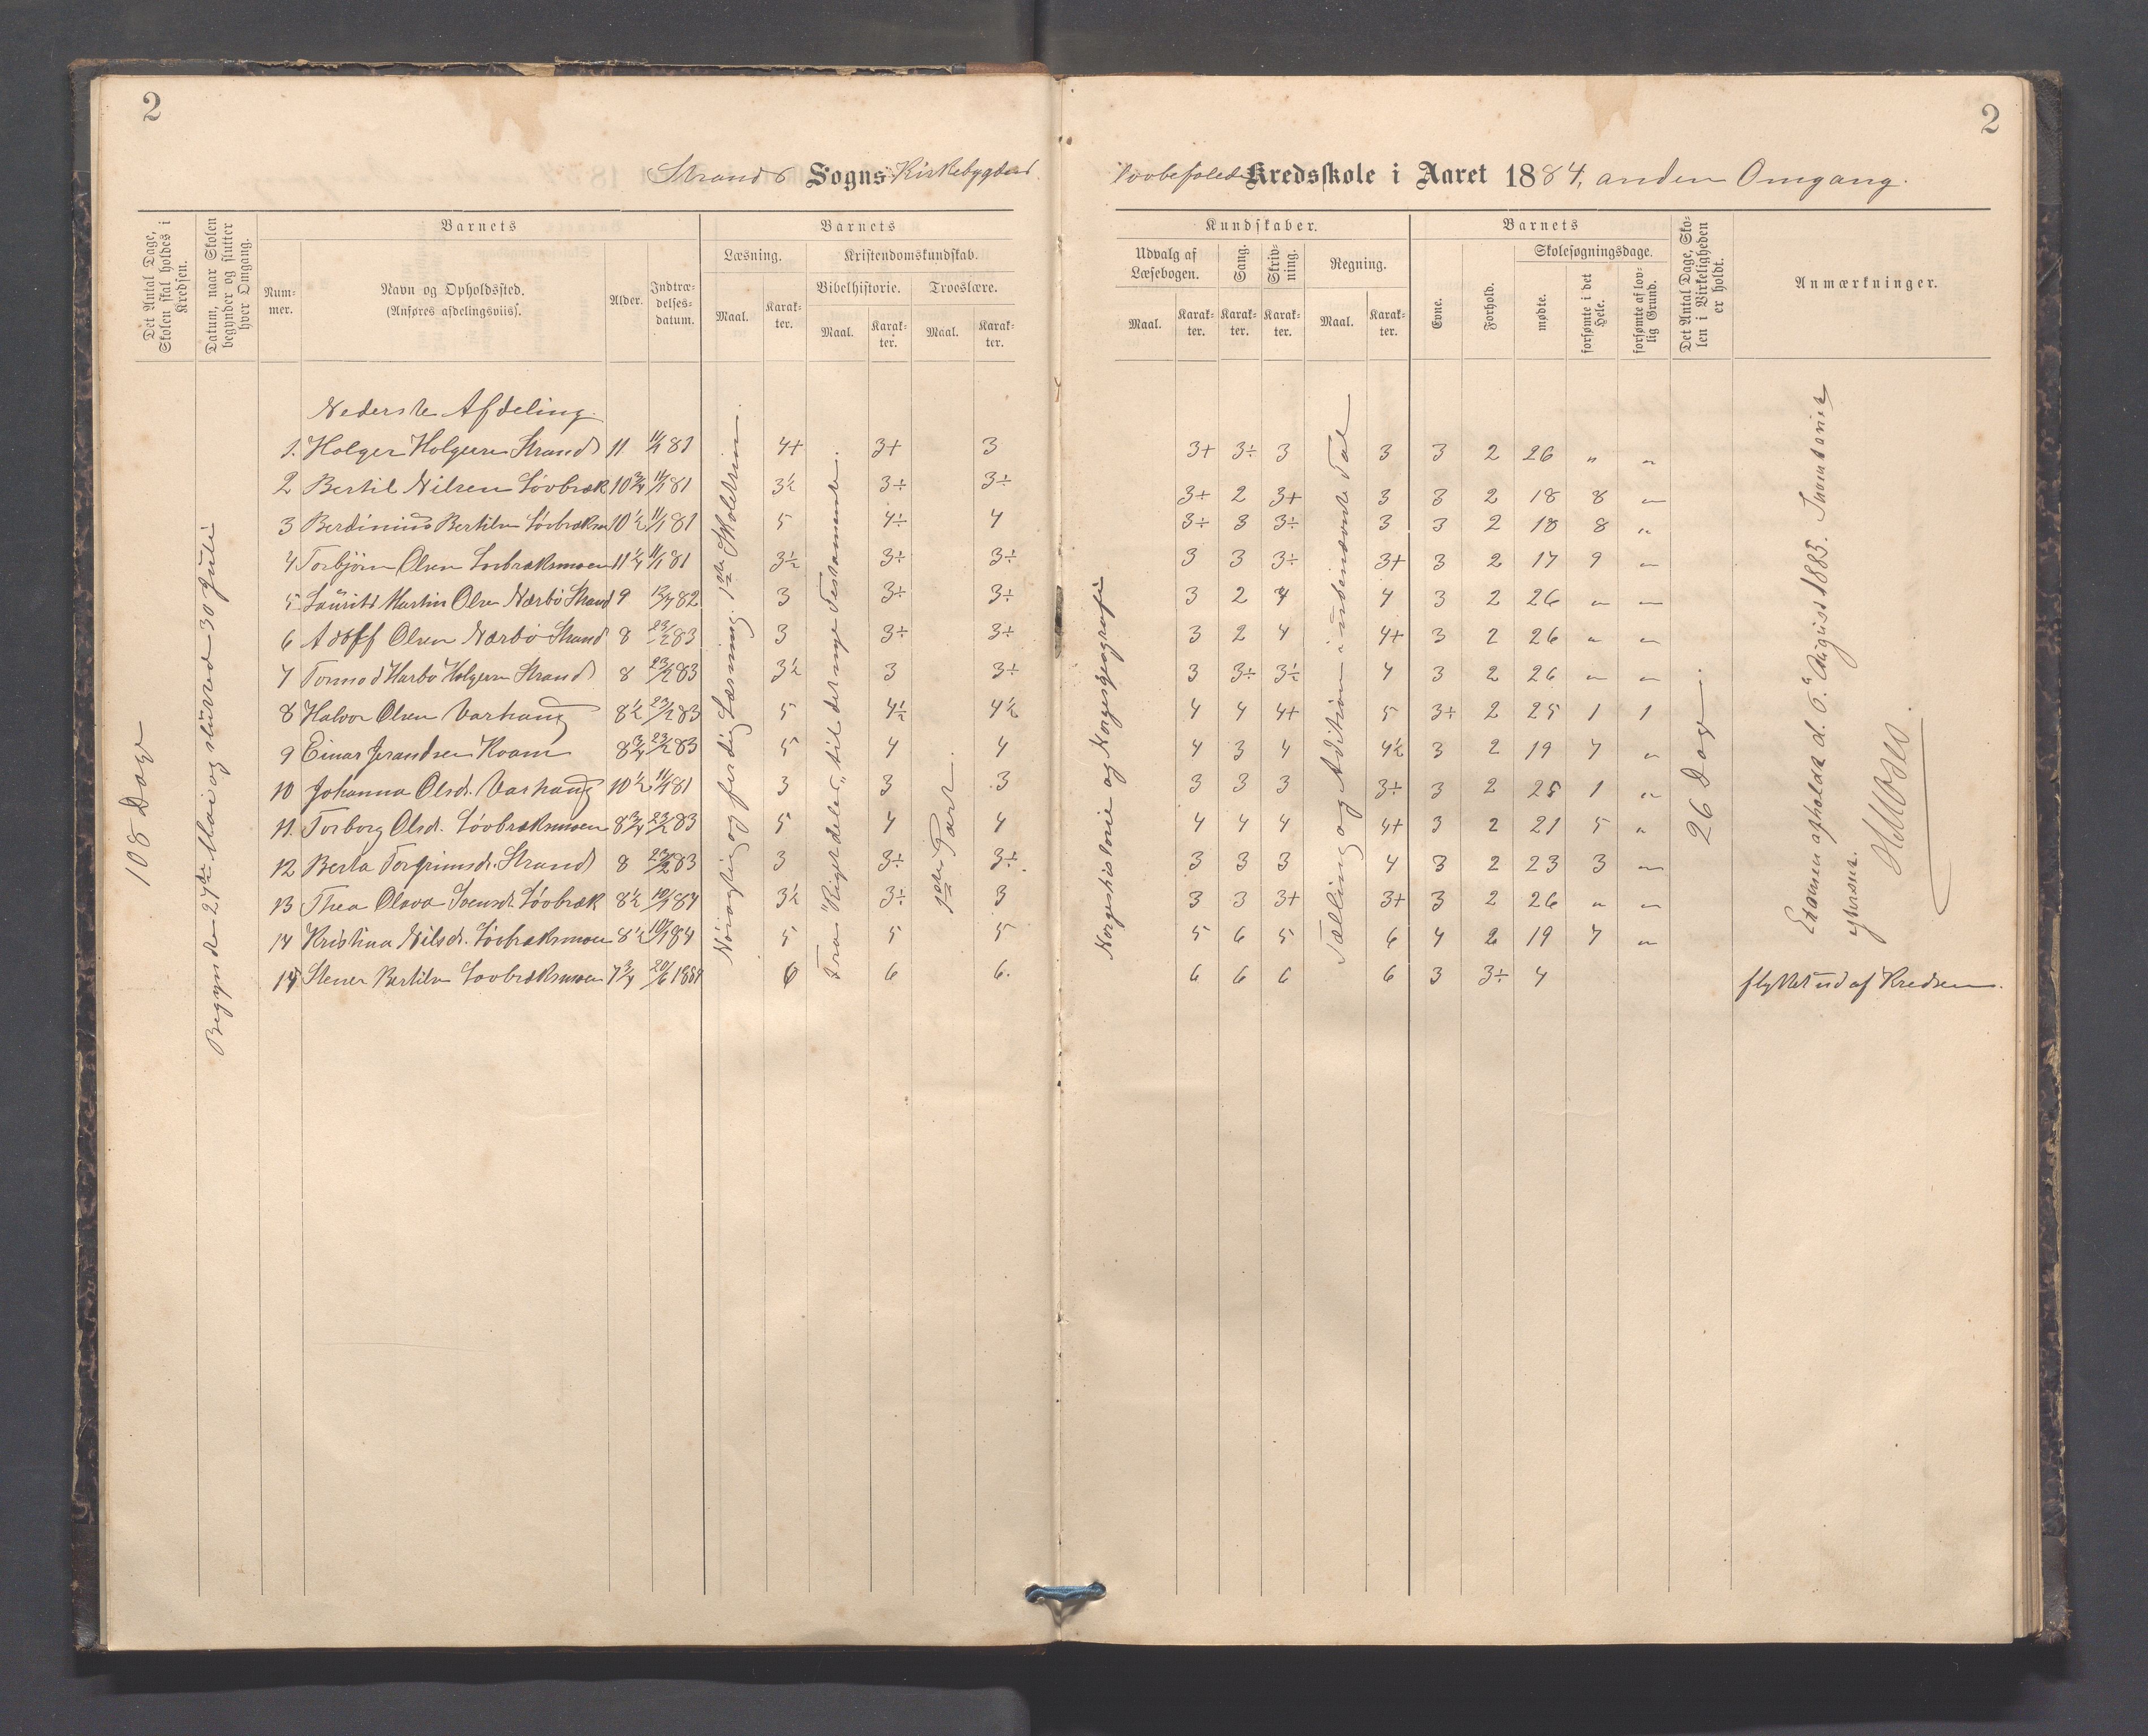 2
2
Strands Sogns Kirkebygdens
Kredsskole i Aaret 1884, anden Omgang.
Det Antal Dage, Skolen skal holdes i Kredsen.
Datum, naar Skolen begynder og slutter hver Omgang.
Barnets
Nummer.
Navn og Opholdssted. (Anføres afdelingsviis).
Alder.
Indtrædelsesdatum.
Barnets
Læsning.
Maal.
Karakter.
Kristendomskundskab.
Bibelhistorie.
Maal.
Karakter.
Troeslære.
Maal.
Karakter.
Kundskaber.
Udvalg af Læsebogen.
Maal.
Karakter.
Sang.
Karakter.
Skrivning.
Karakter.
Regning.
Maal.
Karakter.
Barnets
Evne.
Forhold.
Skolesøgningsdage.
mødte.
forsømte i det Hele.
forsømte af lovlig Grund.
Det Antal Dage, Skolen i Virkeligheden er holdt.
Anmærkninger.
108 Dage
Begyndte 27de Mai og sluttede 30 Juli
Nøiagtig og færdig Læsning. 1ste Skoletrin.
Fra "Rigerdeles" til det nye Testamente.
1ste Part.
Norgeshistorie og Norgesgeografi
Tælling og Addition i ubenævnte Tal
26 Dage.
Nederste Afdeling.
1. Holger Holgersen Strand 11 11/1 81 4+ 3+ 3 3+ 3÷ 3 3 3 2 26 " "
2 Bertil Nilsen Løvbræk 10 3/4 11/1 81 3½ 3÷ 3÷ 3÷ 2 3+ 3 3 2 18 8 "
3 Berdinius Bertilsen Løvbræksm 10½ 11/1 81 5 4÷ 4 3÷ 3 3÷ 3 3 2 18 8 "
4 Torbjørn Olsen Løvbræksmoen 11¼ 11/1 81 3½ 3÷ 3÷ 3 3 3÷ 3+ 3 2 17 9 "
5 Laurits Martin Olsen Nærbø Strand 9 13/7 82 3 3÷ 3÷ 3 2 4 4 3 2 26 " "
6 Adolf Olsen Nærbø Strand 8 23/2 83 3 3÷ 3÷ 3 2 4 4+ 3 2 26 " "
7 Tormod Harbo Holgersen Strand 8 23/2 83 3½ 3 3÷ 3 3÷ 3½ 4 3 2 26 " "
8 Halvor Olsen Varhaug 8½ 23/2 83 5 4½ 4½ 4 4 4+ 5 3÷ 2 25 1 1
9 Einar Jerandsen Kvam 8 3/4 23/2 83 5 4 4 4 3 4 4½ 3 2 19 7 "
10 Johanna Olsdt. Varhaug 10½ 11/1 81 3 3 3 3 3 3 3÷ 3 2 25 1 "
11. Torborg Olsdt. Løvbræksmoen 8 3/4 23/2 83 5 4 4 4 4 4 4+ 3 2 21 5 "
12 Berta Torgrimsdt. Strand 8 23/2 83 3 3÷ 3÷ 3 3 3 4 3 2 23 3 "
13 Thea Olava Svensdt. Løvbræk 8½ 10/1 84 3½ 3÷ 3 3 3 3+ 3+ 3 2 26 " "
14 Kristina Nilsdt. Løvbræksmoen 8½ 10/1 84 5 5 5 5 6 5 6 4 2 19 7 "
15 Stener Bertilsen Løvbræksmoen 7 3/4 20/6 1884 6 6 6. 6 6 6 6 3 3÷ 4 flyttet ud af Kredsen.
Examen afholdt d. 6. August 1885.